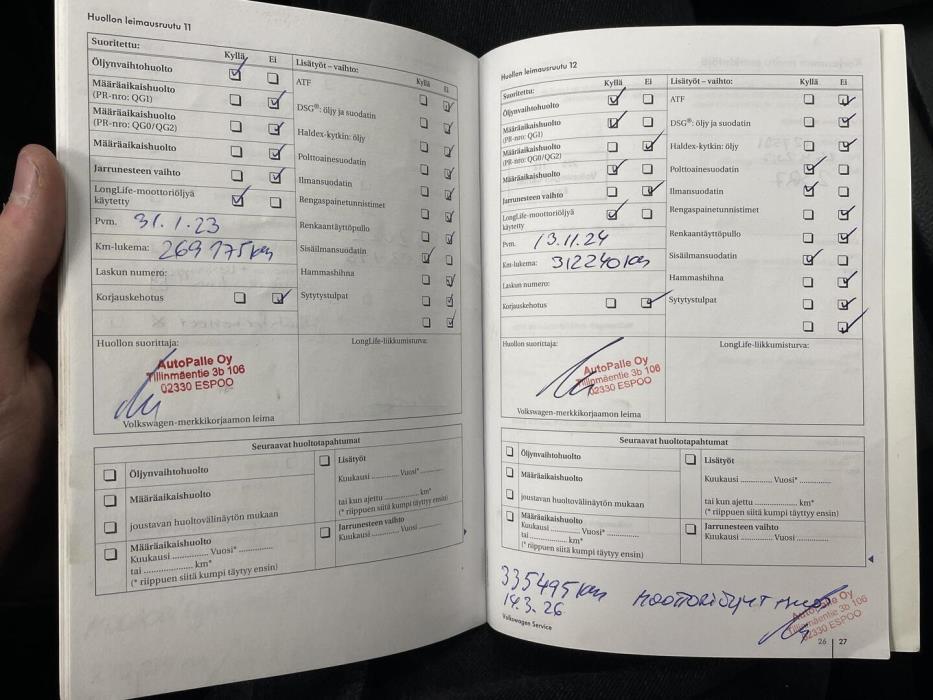 Huollon leimausruutu 11
Suoritettu:
Kyllä
Ei
Öljynvaihtohuolto
Määräaikaishuolto
(PR-nro: QG1)
Määräaikaishuolto
(PR-nro: QG0/QG2)
Määräaikaishuolto
Jarrunesteen vaihto
LongLife-moottoriöljyä
käytetty
Pvm. 31.1.23
Km-lukema: 269 175 km
Laskun numero:
Korjauskehotus
Lisätyöt – vaihto:
Kyllä
Ei
ATF
DSG®: öljy ja suodatin
Haldex-kytkin: öljy
Polttoainesuodatin
Ilmansuodatin
Rengaspainetunnistimet
Renkaantäyttöpullo
Sisäilmansuodatin
Hammashihna
Sytytystulpat
Huollon suorittaja:
AutoPalle Oy
Tillinmäentie 3b 106
02330 ESPOO
Volkswagen-merkkikorjaamon leima
LongLife-liikkumisturva:
Seuraavat huoltotapahtumat
Öljynvaihtohuolto
Määräaikaishuolto
joustavan huoltovälinäytön mukaan
Määräaikaishuolto
Kuukausi .............. Vuosi* ..............
tai .................... km*
(* riippuen siitä kumpi täytyy ensin)
Lisätyöt
Kuukausi ............ Vuosi* ............
tai kun ajettu .............. km*
(* riippuen siitä kumpi täytyy ensin)
Jarrunesteen vaihto
Kuukausi ............ Vuosi* ............
Huollon leimausruutu 12
Suoritettu:
Kyllä
Ei
Öljynvaihtohuolto
Määräaikaishuolto
(PR-nro: QG1)
Määräaikaishuolto
(PR-nro: QG0/QG2)
Määräaikaishuolto
Jarrunesteen vaihto
LongLife-moottoriöljyä
käytetty
Pvm. 13.11.24
Km-lukema: 312240 km
Laskun numero:
Korjauskehotus
Lisätyöt – vaihto:
Kyllä
Ei
ATF
DSG®: öljy ja suodatin
Haldex-kytkin: öljy
Polttoainesuodatin
Ilmansuodatin
Rengaspainetunnistimet
Renkaantäyttöpullo
Sisäilmansuodatin
Hammashihna
Sytytystulpat
Huollon suorittaja:
AutoPalle Oy
Tillinmäentie 3b 106
02330 ESPOO
Volkswagen-merkkikorjaamon leima
LongLife-liikkumisturva:
Seuraavat huoltotapahtumat
Öljynvaihtohuolto
Määräaikaishuolto
joustavan huoltovälinäytön mukaan
Määräaikaishuolto
Kuukausi ............ Vuosi* ............
tai .................... km*
(* riippuen siitä kumpi täytyy ensin)
Lisätyöt
Kuukausi ............ Vuosi* ............
tai kun ajettu .............. km*
(* riippuen siitä kumpi täytyy ensin)
Jarrunesteen vaihto
Kuukausi ............ Vuosi* ............
335495 km
14.3.26
AutoPalle Oy
Tillinmäentie 3b 106
02330 ESPOO
Volkswagen Service
26 | 27